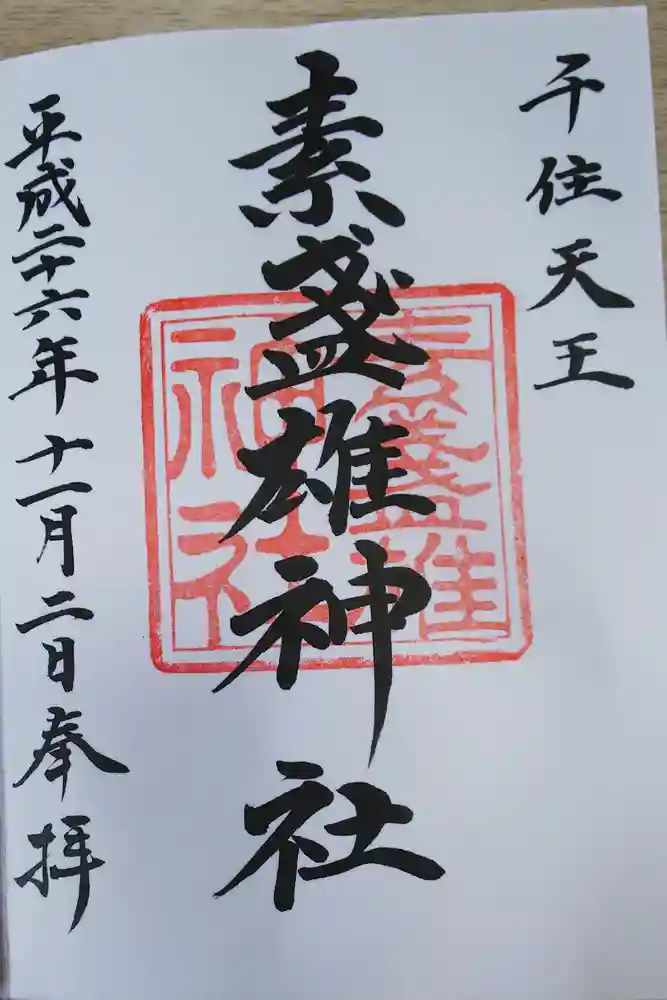 千住天王
素盞雄神社
素盞雄
神社
平成二十六年十一月二日奉拝